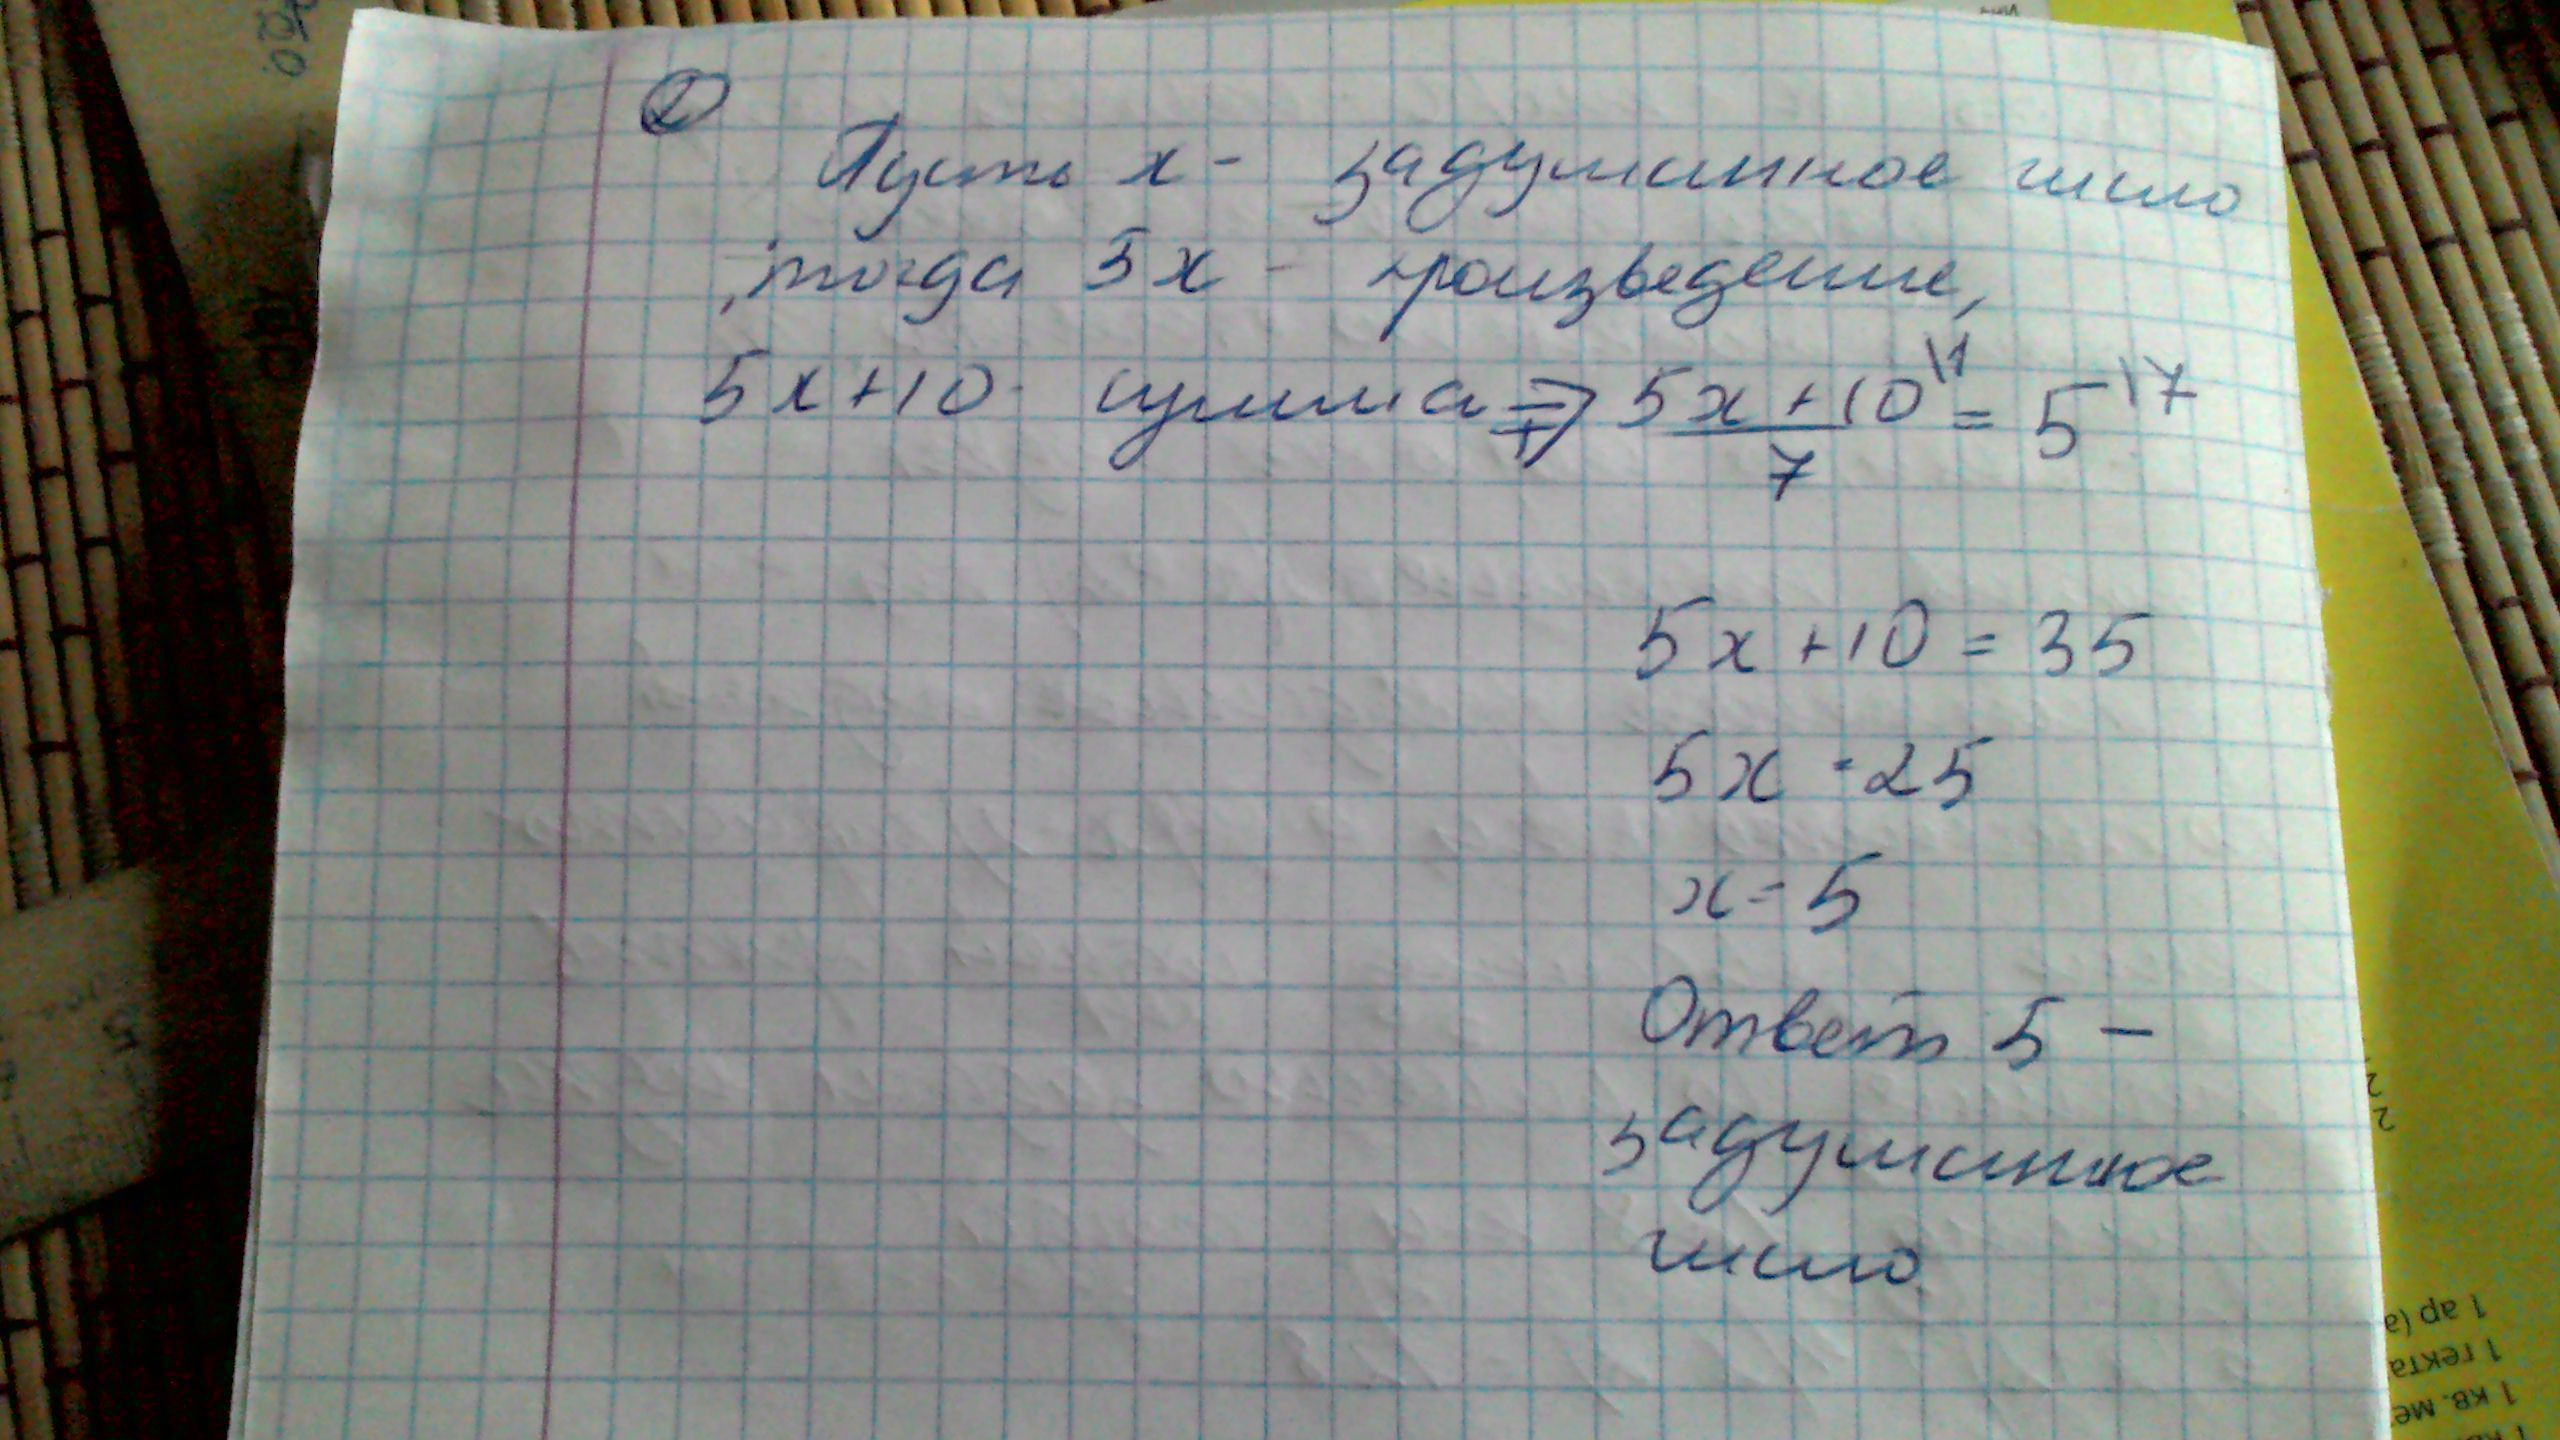 ②
Пусть x - задуманное число
, тогда 5x - произведение,
5x+10 - сумма ⇒ 5x+10\1 / 7 = 5\7
5x+10=35
5x=25
x=5
Ответ 5 -
задуманное
число.
1 ар (а
1 гекта
1 кв. ме